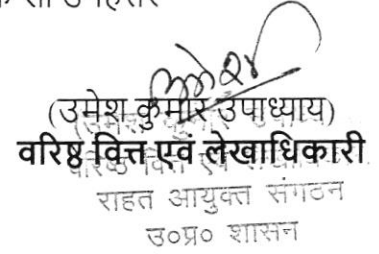 (उमेश कुमार उपाध्याय)
वरिष्ठ वित्त एवं लेखाधिकारी
राहत आयुक्त संगठन
उ०प्र० शासन